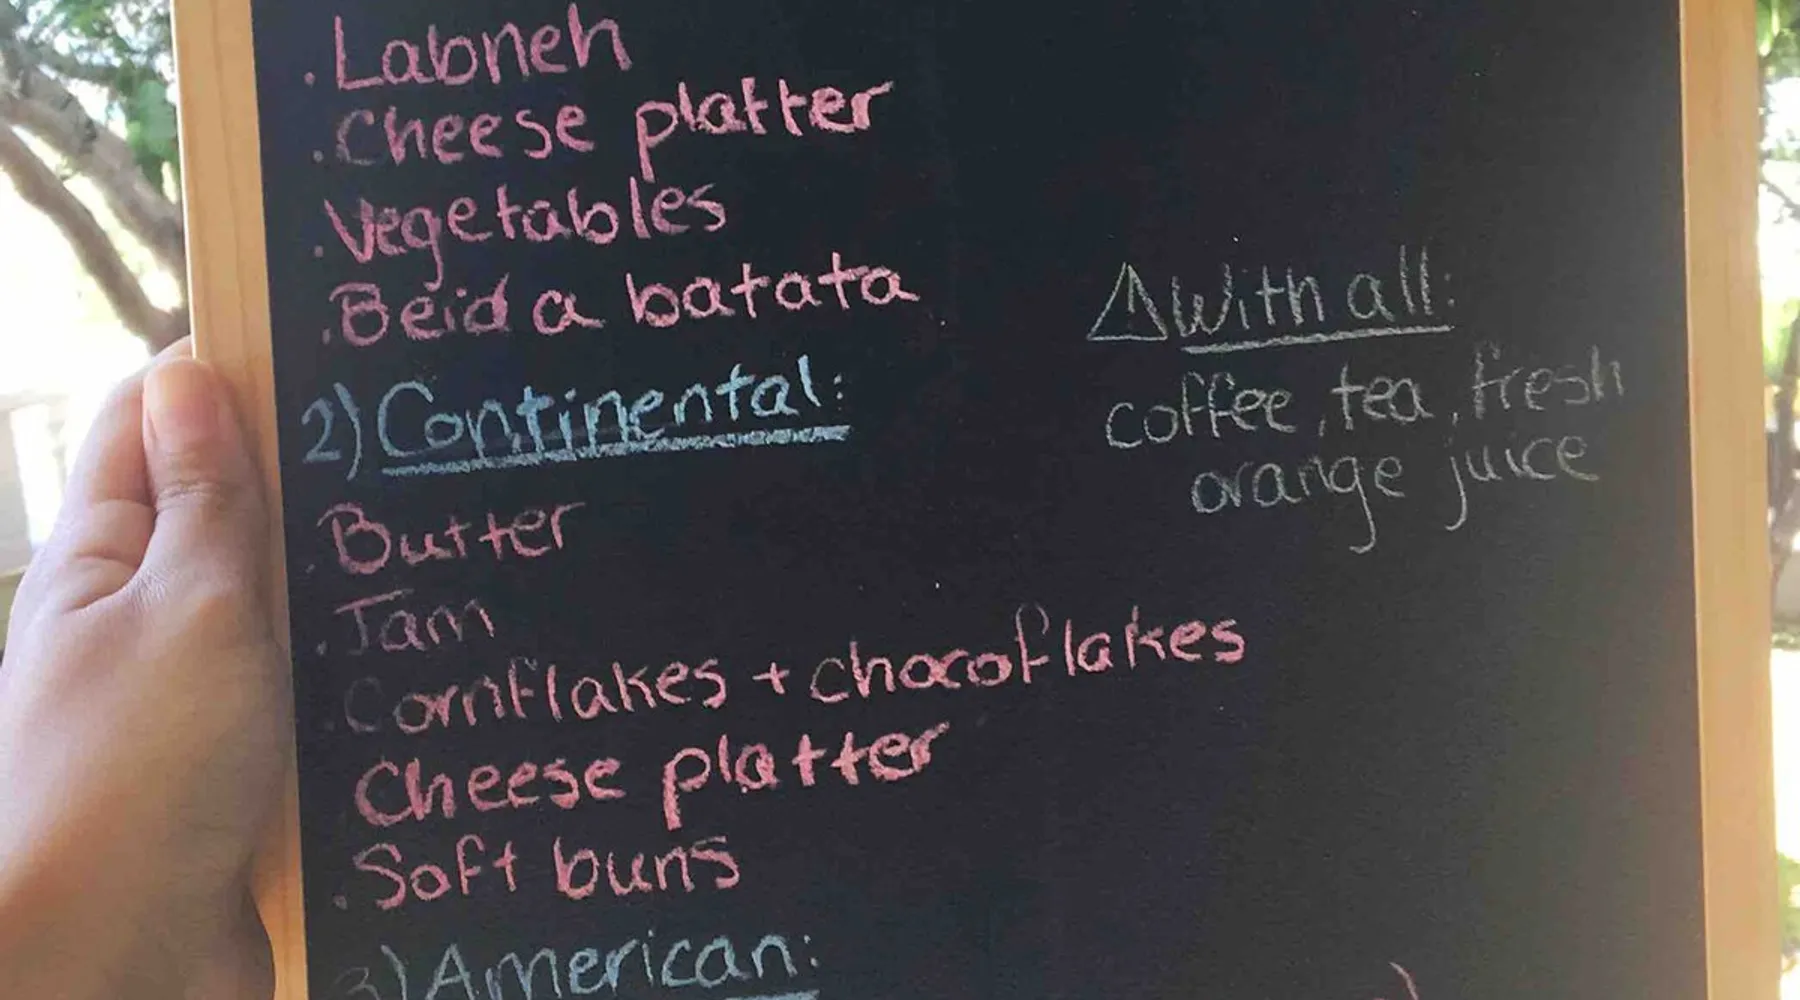 .Labneh
.Cheese platter
.Vegetables
.Beid a batata
2) Continental:
.Butter
.Jam
.Cornflakes + chocoflakes
Cheese platter
.Soft buns
3) American:
⚠With all:
coffee, tea, fresh
orange juice